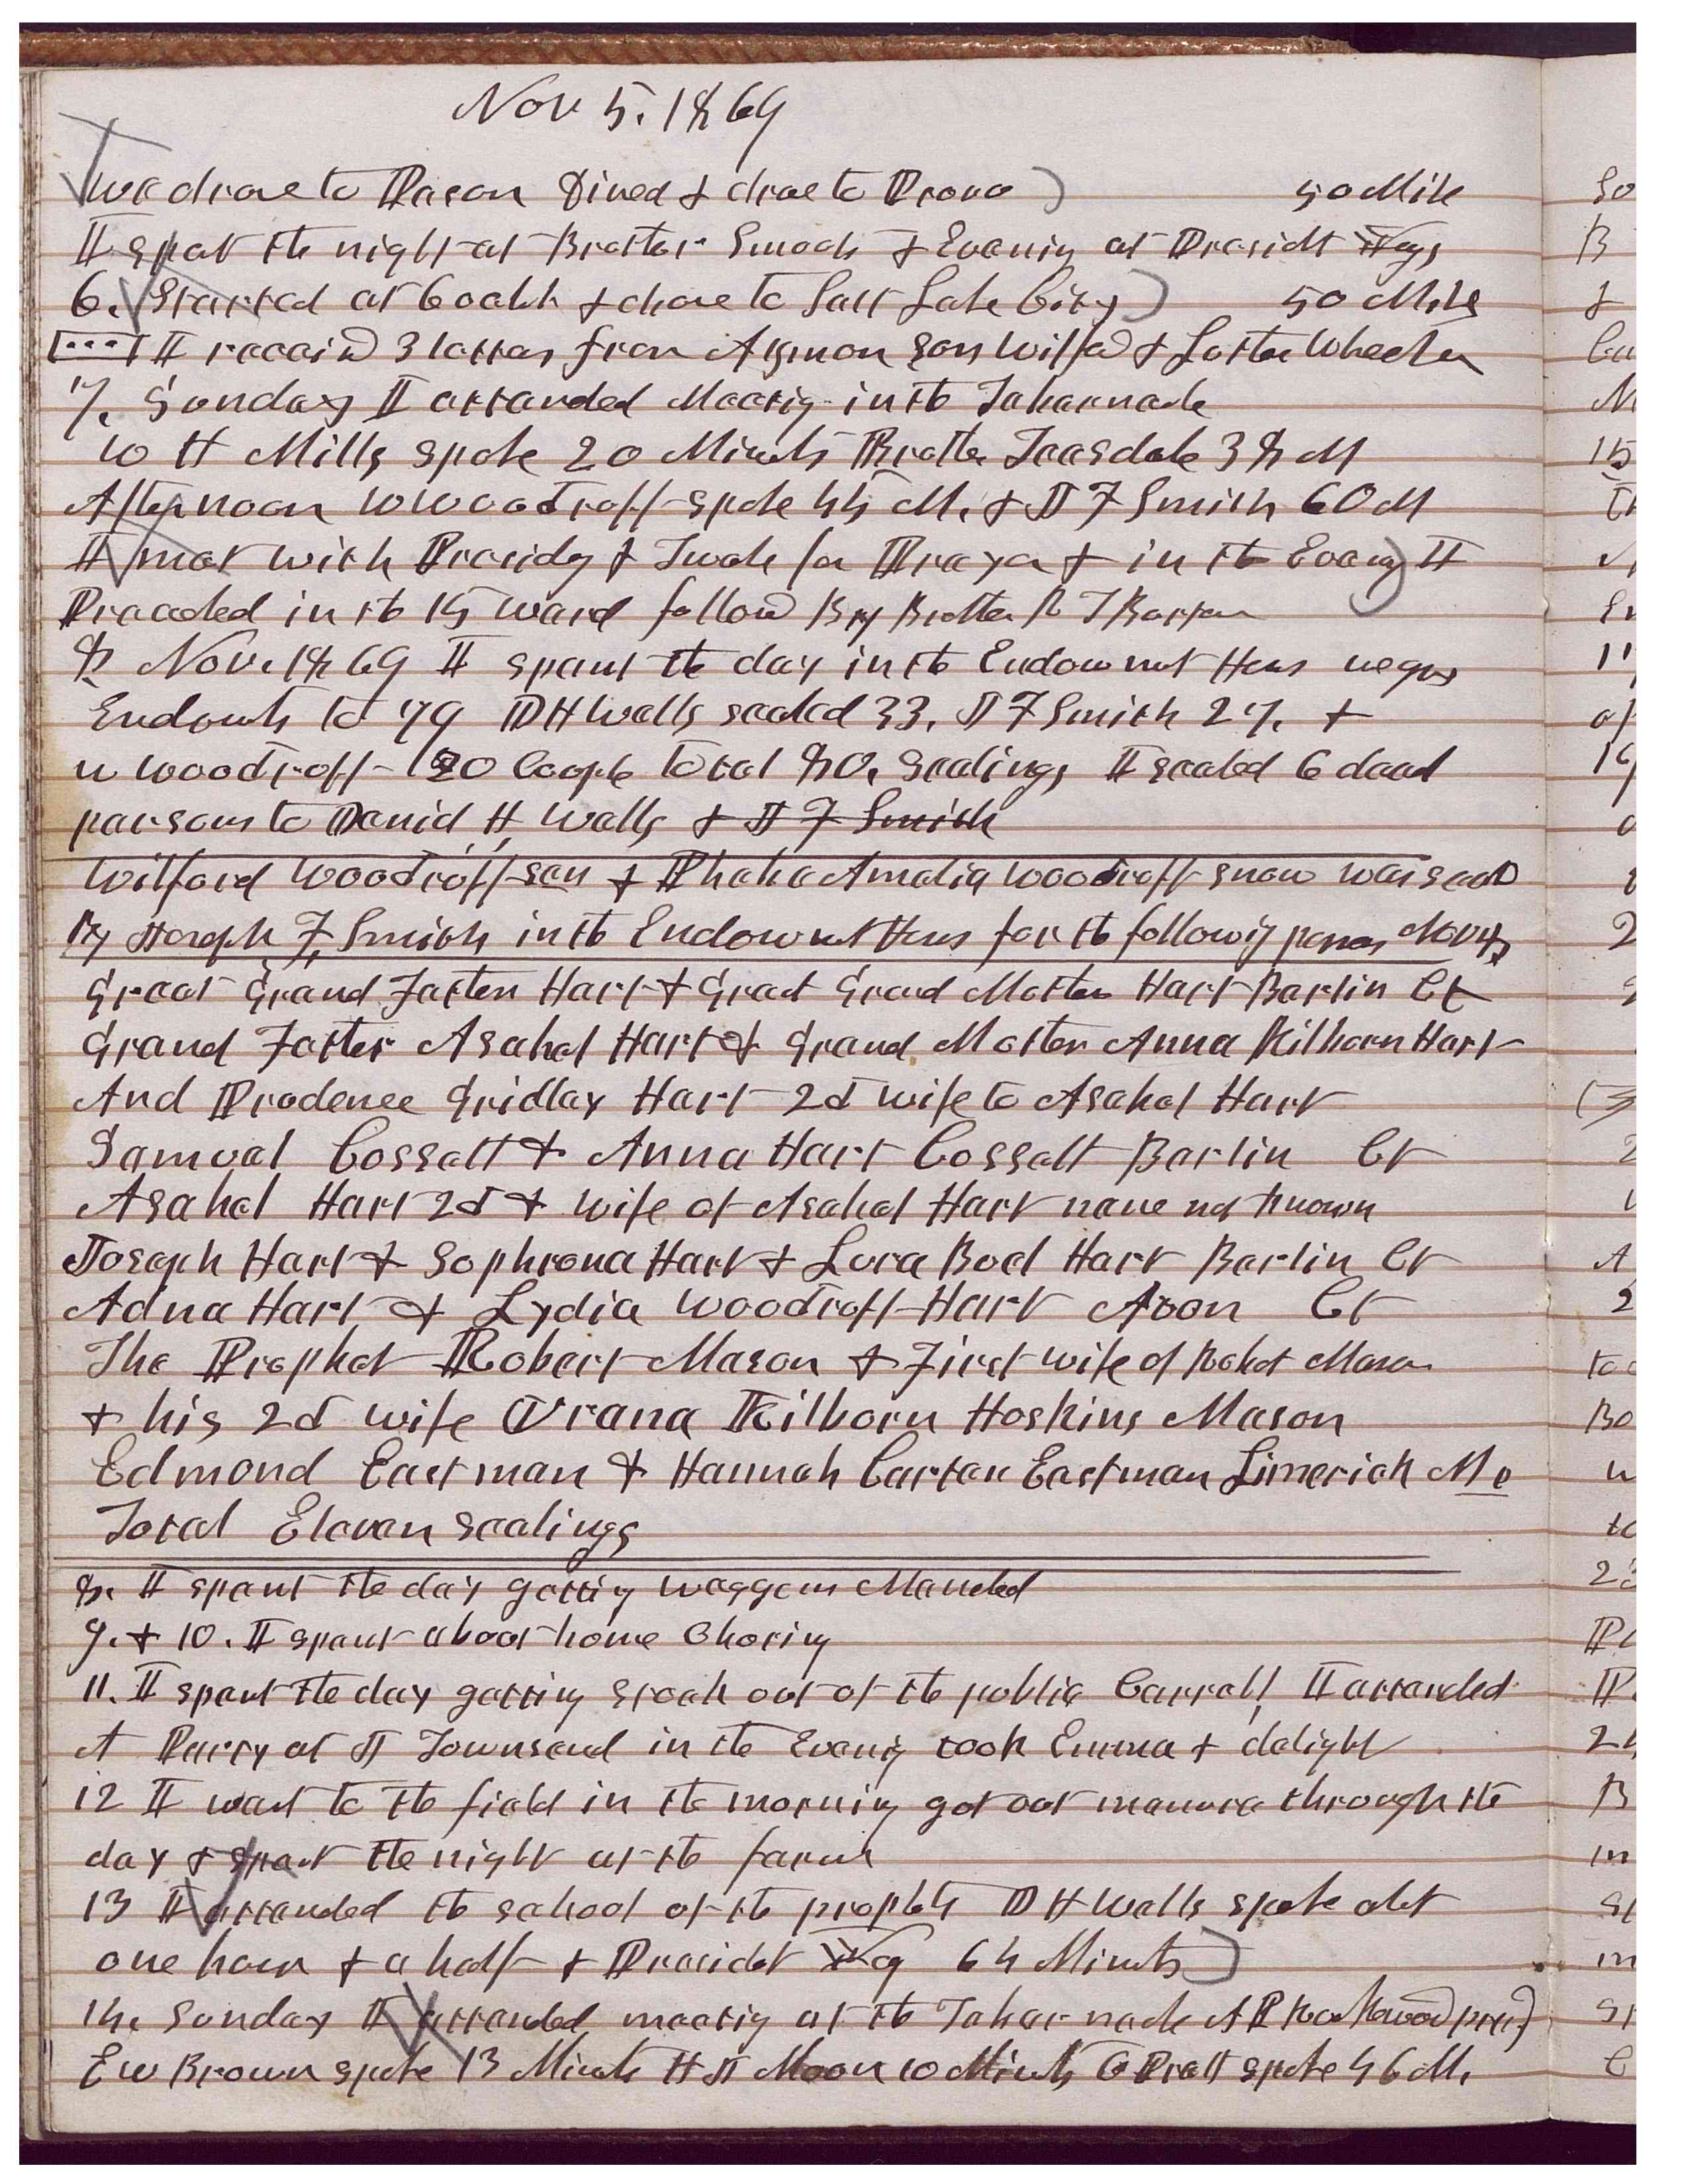 Nov 5. 1869
we drove to Payson Dined & drove to Provo) 50 Mile
I spent the night at Brother Smoots & Evening at Presidt Ygs
6. Started at 6 oclok & drove to Salt Lake City) 50 Mils
I receivd 3 letters from Azmon Sons Wilfd & Luther Wheeler
7. Sunday I attended Meetig in the Tabernacle
W H Mills spoke 20 Minuts Brother Teasdale 38 M
Afternoon W Woodruff spoke 45 M. & J F Smith 60 M
I met with Presidy & Twele for Prayer & in the Eveng) I
Preached in the 15 ward followd By Brother R T Burton
8 Nov. 1869 I spent the day in the Endowmnt Hous we gave
Endowts to 79 D H Wells sealed 33. J F Smith 27. &
W Woodruff 20 Couple Total 80. Sealings I sealed 6 dead
persons to Daniel H, Wells & J F Smith
Wilford Woodruff sen & Phebe Amelia Woodruff Snow was seald
By Joseph F, Smith in the Endowmt Hous for the followig persons Nov 8
Great Grand Father Hart & Great Grand Mother Hart Berlin Ct
Grand Father Asahel Hart & Grand Mother Anna Kilborn Hart
And Prudence Gridley Hart 2d wife to Asahel Hart
Samuel Cossett & Anna Hart Cossett Berlin Ct
Asahel Hart 2d & wife of Asahel Hart name not known
Joseph Hart & Sophrona Hart & Lura Boel Hart Berlin Ct
Adna Hart & Lydia Woodruff Hart Avon Ct
The Prophet Robert Mason & First wife of Robet Mason
& his 2d wife Urana Kilborn Hoskins Mason
Edmond Eastman & Hannah Carter Eastman Limerick Me
Total Eleven sealings
8. I spent the day getting waggons Mended
9. & 10. I spent about home Choring
11. I spent the day getting stock out of the public Carrall, I attended
A Party at J Townsend in the Evenig took Emma & delight
12 I went to the field in the morning got out manure through the
day & spent the night at the farm
13 I attended the school of the prophets D H Wells spoke abt
one hour & a half & Presidet Yg 64 Minuts)
14. Sunday I attended meetig at the Tabernacle A P Rockwood pred)
E W Brown spoke 13 Minuts H J Moon 10 Minuts O Pratt spoke 46 M.